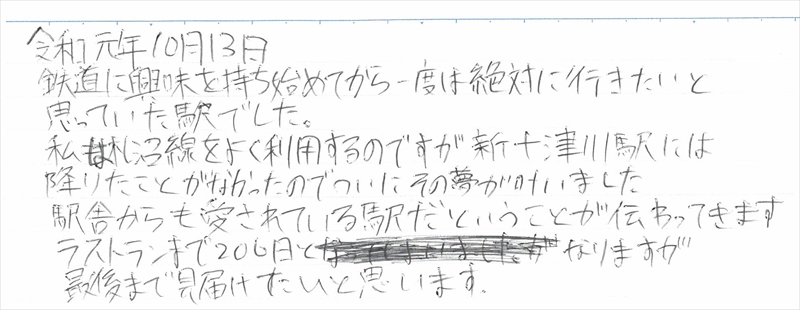 令和元年10月13日
鉄道に興味を持ち始めてから一度は絶対に行きたいと
思っていた駅でした。
私は札沼線をよく利用するのですが新十津川駅には
降りたことがなかったのでついにその夢が叶いました
駅舎からも愛されている駅だということが伝わってきます
ラストランまで206日となりますが
最後まで見届けたいと思います。